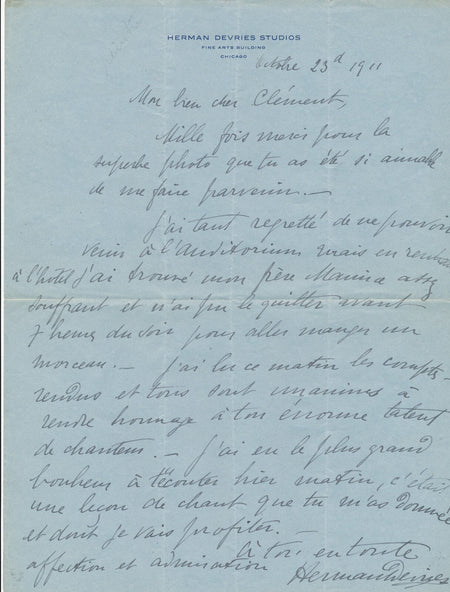 HERMAN DEVRIES STUDIOS
FINE ARTS BUILDING
CHICAGO
Octobre 23d 1911
Mon bien cher Clément,
Mille fois merci pour la
superbe photo que tu as été si aimable
de me faire parvenir. —
J'ai tant regretté de ne pouvoir
venir à l'Auditorium mais en rentrant
à l'hôtel j'ai trouvé mon frère Maurice assez
souffrant et n'ai pu le quitter avant
7 heures du soir pour aller manger un
morceau. — J'ai lu ce matin les compts-
rendus et tous sont unanimes à
rendre hommage à ton énorme talent
de chanteur. — J'ai eu le plus grand
bonheur à t'écouter hier matin, c'était
une leçon de chant que tu m'as donnée
et dont je vais profiter. —
à toi en toute
affection et admiration
Herman Devries